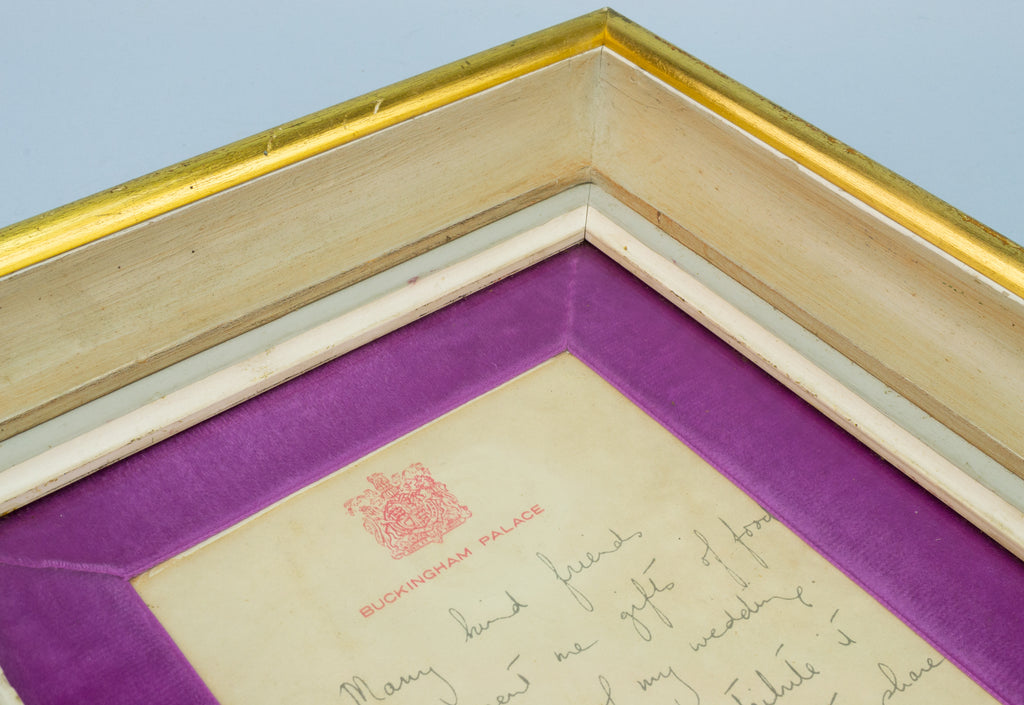 BUCKINGHAM PALACE
Many kind friends
sent me gifts of food
of my wedding.
it
share